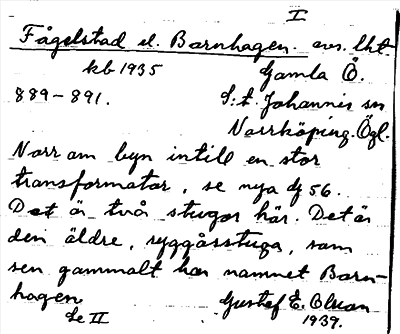 I
Fågelstad el. Barnhagen. avs. lht.
kb 1935 Gamla Ö.
889-891. S:t Johannis sn
Norrköping. Ögl.
Norr om byn intill en stor
transformator, se nya dj 56.
Det är två stugor här. Det är
den äldre, ryggåsstuga, som
sen gammalt har namnet Barn-
hagen
Se II Gustaf E. Olson
1937.